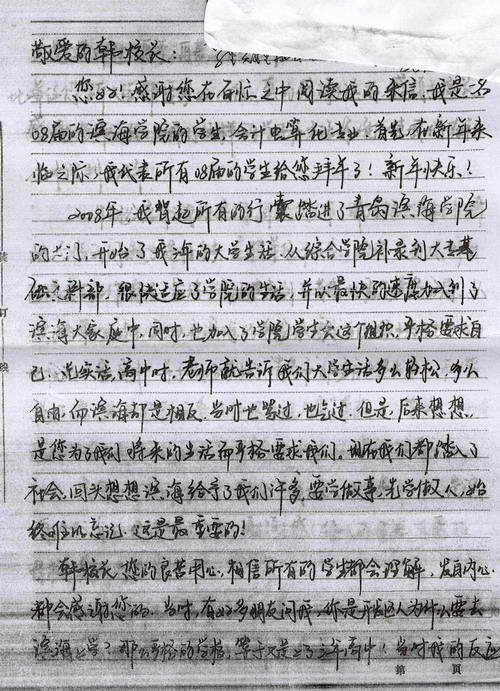 敬爱的韩校长：
您好！感谢您在百忙之中阅读我的来信，我是一名
08届的滨海学院的学生，会计电算化专业，首先，在新年来
临之际，我代表所有08届的学生给您拜年了！新年快乐！
2008年，我背起所有的行囊踏进了青岛滨海学院
的大门，开始了我的大学生活，从综合学院补录到大专基
础示科部，很快适应了学院的生活，并以最快的速度加入到了
滨海大家庭中，同时，也加入了学院学生会这个组织，严格要求自
己，说实话，高中时，老师就告诉我们大学生活多么轻松，多么
自由，而滨海却是相反，当时也哭过，也气过，但是，后来想想，
是您为了我们将来的生活而严格要求我们，现在我们都踏入了
社会，回头想想滨海给予了我们许多，要学做事，先学做人，始
终难以忘记，这是最重要的！
韩校长，您的良苦用心，相信所有的学生都会理解，发自内心
都会感谢您的，当时，有好多朋友问我，你是开发区人为什么要去
滨海上学？那么严格的学校，等于又是上了三年高中！当时我的反应
第 页